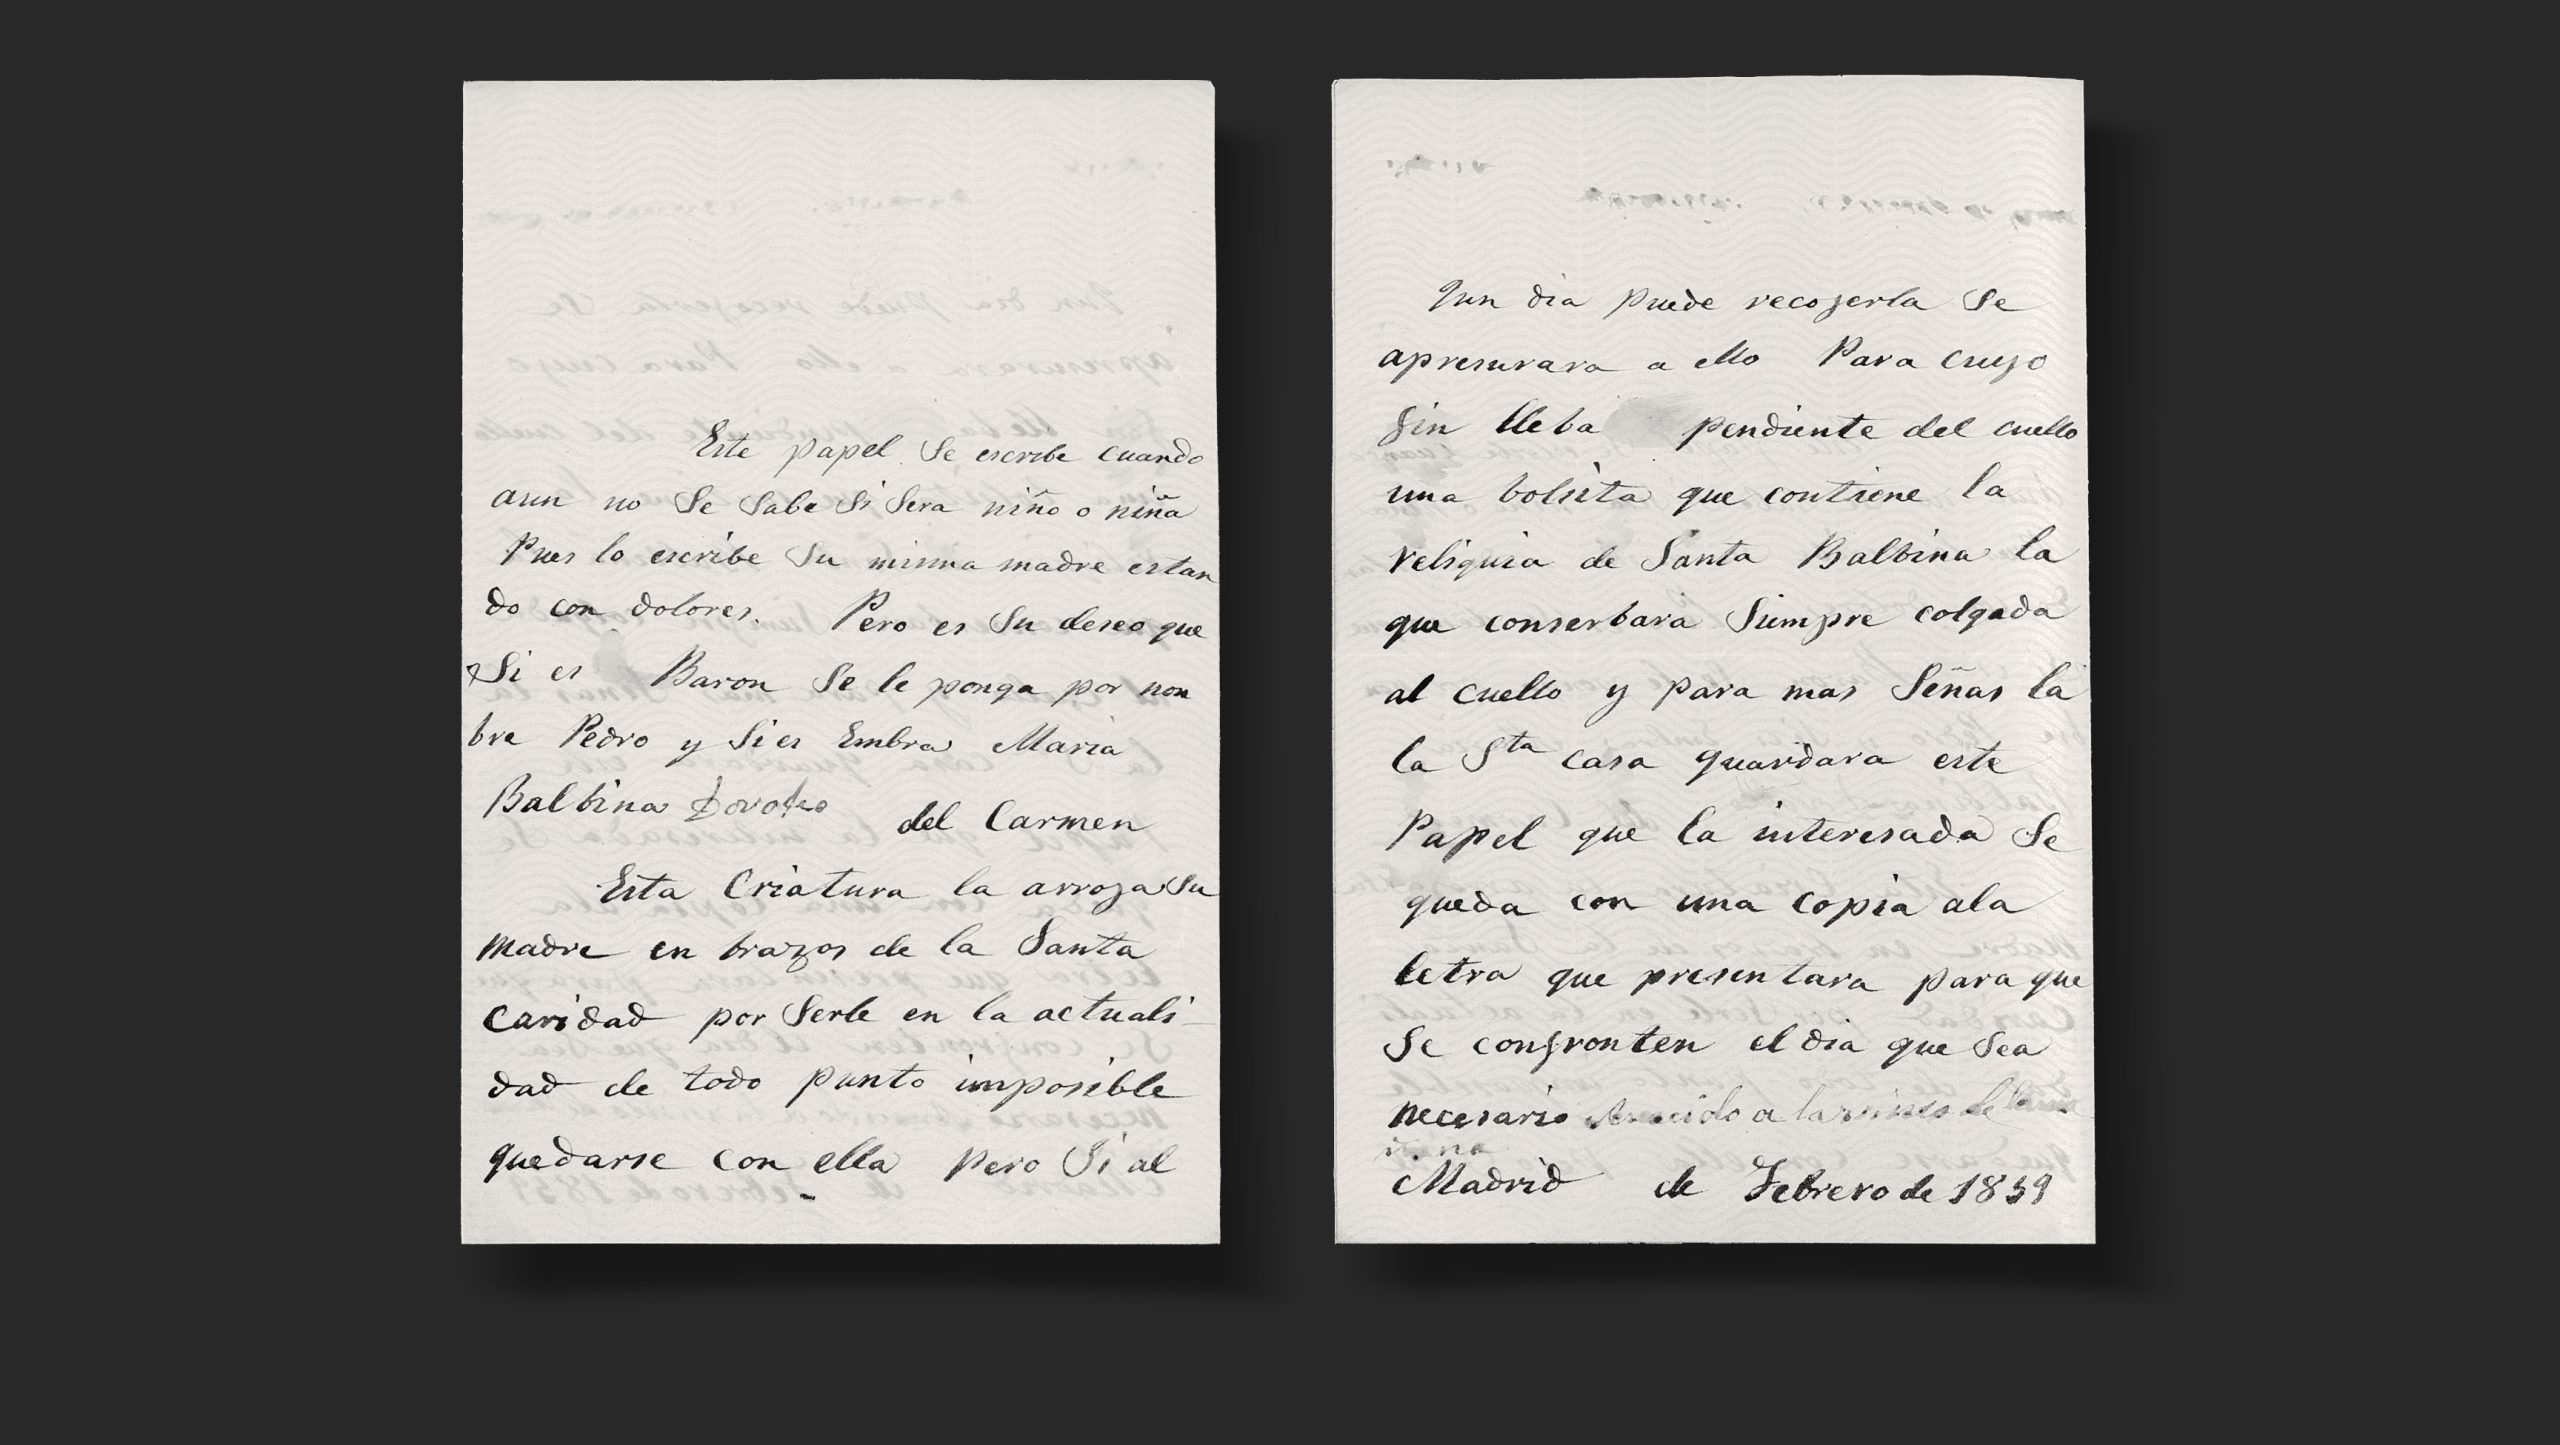 Este papel se escribe cuando
aun no se sabe si sera niño o niña
Pues lo escribe su misma madre estan
do con dolores. Pero es su deseo que
Si es Baron se le ponga por non
bre Pedro y si es Embra Maria
Balbina del Carmen
Esta Criatura la arroja su
madre en brazos de la Santa
caridad por serle en la actuali-
dad de todo punto imposible
quedarse con ella pero si al
gun dia puede recojerla se
apresurara a ello Para cuyo
fin lleba pendiente del cuello
una bolsita que contiene la
reliquia de Santa Balbina la
que conserbara siempre colgada
al cuello y para mas señas la
la Sta casa guardara este
Papel que la interesada se
queda con una copia ala
letra que presentara para que
se confronten el dia que sea
necesario a las de
Madrid de Febrero de 1859